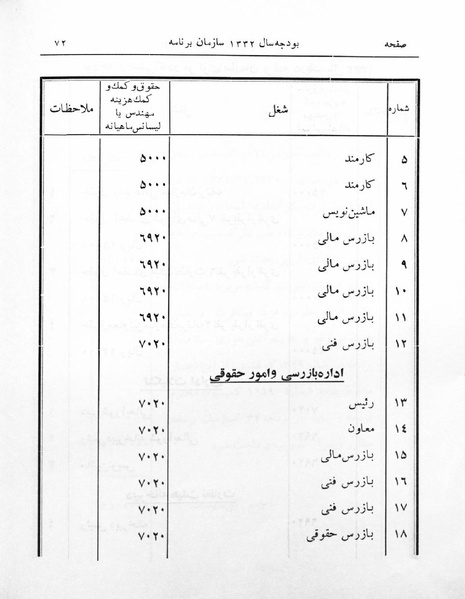 صفحه بودجه سال ۱۳۳۲ سازمان برنامه ۷۲
شماره شغل حقوق و کمک و کمک هزینه مهندس یا لیسانس ماهیانه ملاحظات
۵ کارمند ۵۰۰۰
۶ کارمند ۵۰۰۰
۷ ماشین نویس ۵۰۰۰
۸ بازرس مالی ۶۹۲۰
۹ بازرس مالی ۶۹۲۰
۱۰ بازرس مالی ۶۹۲۰
۱۱ بازرس مالی ۶۹۲۰
۱۲ بازرس فنی ۷۰۲۰
اداره بازرسی وامور حقوقی
۱۳ رئیس ۷۰۲۰
۱۴ معاون ۷۰۲۰
۱۵ بازرس مالی ۷۰۲۰
۱۶ بازرس فنی ۷۰۲۰
۱۷ بازرس فنی ۷۰۲۰
۱۸ بازرس حقوقی ۷۰۲۰